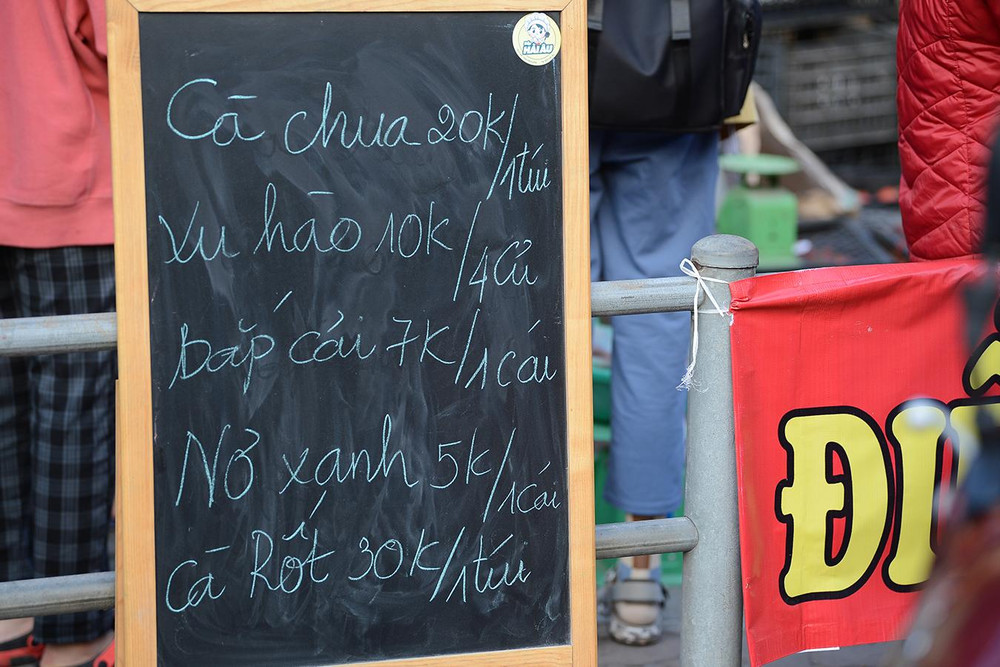 HẢI ÂU
Cà chua 20K/1túi
Xu hào 10K/4Củ
Bắp cải 7K/1cái
Nơ xanh 5K/1Cái
Cà Rốt 30K/1túi